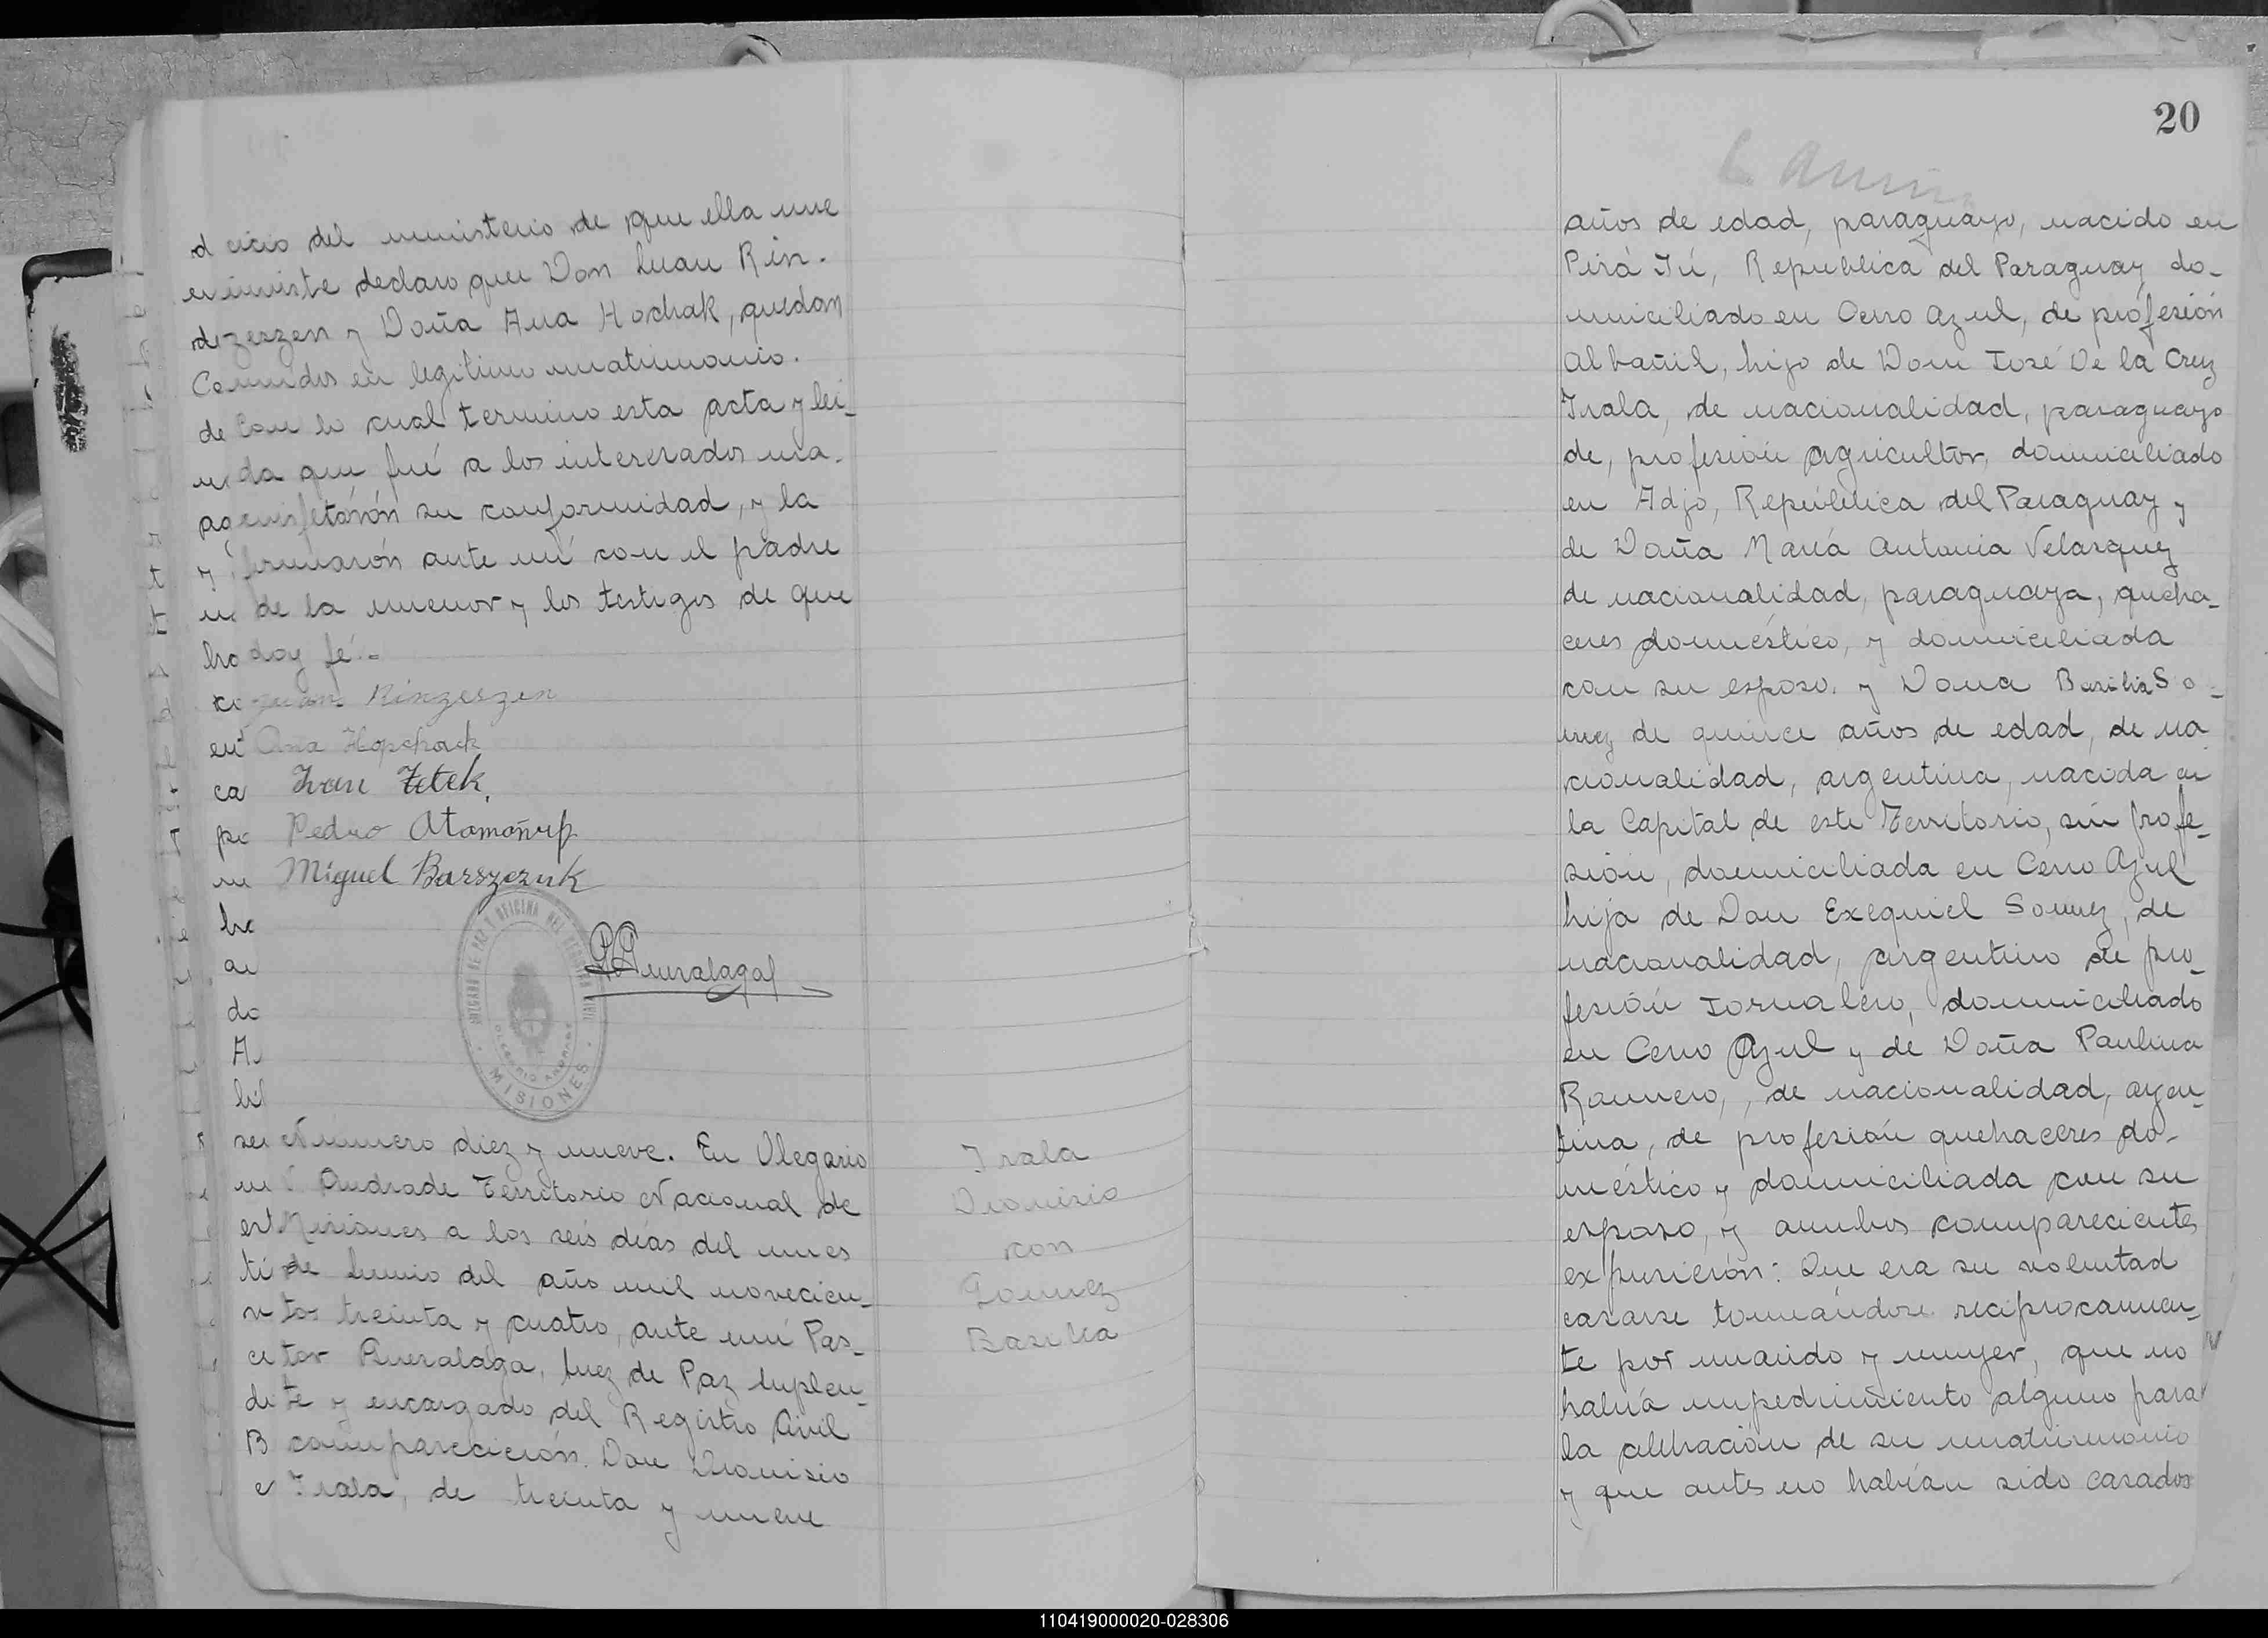 cicio del ministerio de que ella me
inviste declaro que Don Luau Rin-
dzeszen y Doña Ana Hochak, quedan
unidos en legitimo matrimonio.
Con lo cual termino esta acta y lei_
da que fué a los interesados ma-
nifetárón su conformidad, y la
firmarón ante mí con el padre
de la menor y los testigos de que
doy fé.-
Juan Rinzeszen
Ana Hopchack
Ivan Zetek.
Pedro Atamañuk
Miguel Barszczuk
P. Amaralaga
JUZGADO DE PAZ Y OFICINA DEL REGISTRO CIVIL
OLEGARIO ANDRADE
MISIONES
Número diez y nueve. En Olegario
Andrade Territorio Nacional de
Misiones a los seis días del mes
de Junio del año mil novecien_
tos treinta y cuatro, ante mí Pas_
tor Ameralaga, Juez de Paz suplen_
te y encargado del Registro Civil
comparecierón. Don Dionisio
Irala, de treinta y nueve
Irala
Dionisio
con
Gomez
Basilia
20
años de edad, paraguayo, nacido en
Pirá Jú, Republica del Paraguay, do_
miciliado en Cerro Azul, de profesión
Albañil, hijo de Don José De la Cruz
Irala, de nacionalidad, paraguayo
de, profesión agricultor, domiciliado
en Adjo, República del Paraguay y
de Doña María Antonia Velasquez
de nacionalidad, paraguaya, queha_
ceres doméstico, y domiciliada
con su esposo. y Dona Basilia Go_
mez de quince años de edad, de na
cionalidad, argentina, nacida en
la Capital de este Territorio, sin profe_
sión, domiciliada en Cerro Azul
hija de Don Exequiel Gomez, de
nacionalidad, argentino de pro_
fesión Jornalero, domiciliado
en Cerro Azul y de Doña Paulina
Romero, , de nacionalidad, argen_
tina, de profesión quehaceres do-
méstico y domiciliada con su
esposo, y ambos comparecientes
expusierón: Que era su voluntad
casarse tomándose reciprocamen_
te por marido y mujer, que no
había impedimiento alguno para
la celebración de su matrimonio
y que antes no habían sido casados
110419000020-028306